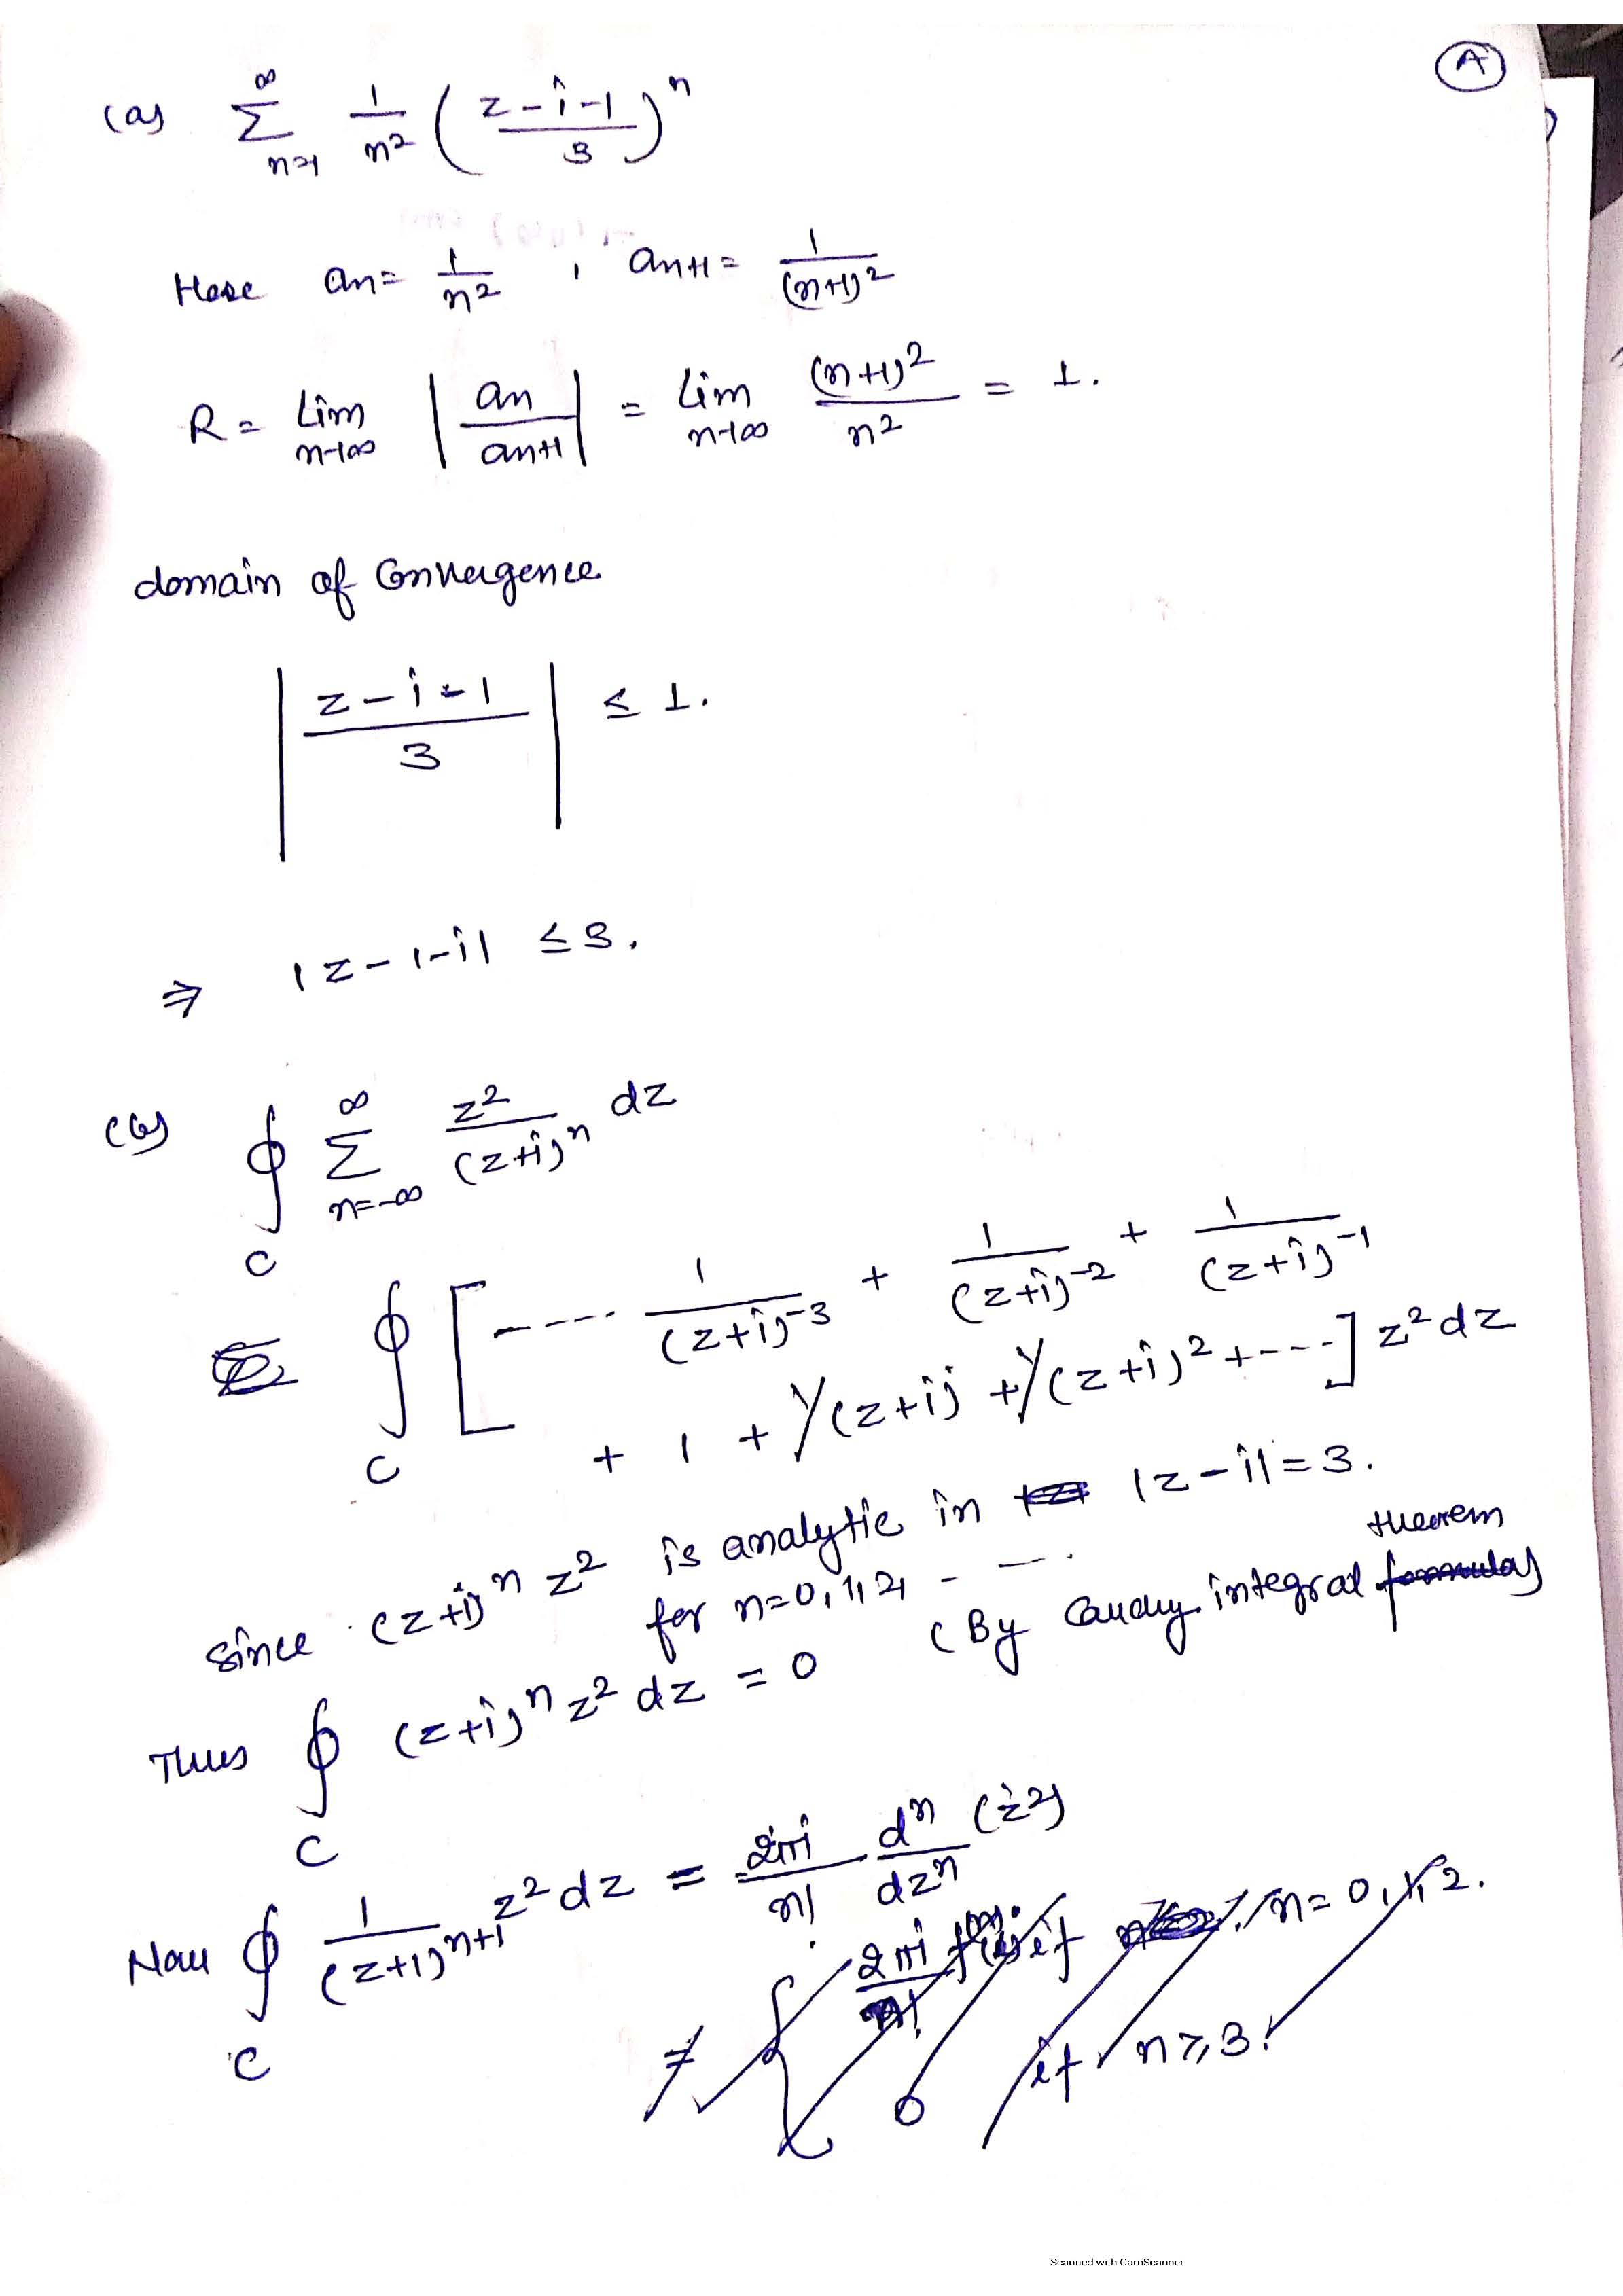 (A)
(a) \sum_{n=1}^{\infty} \frac{1}{n^2} \left( \frac{z-i-1}{3} \right)^n
Here a_n = \frac{1}{n^2} , a_{n+1} = \frac{1}{(n+1)^2}
R = \lim_{n \to \infty} \left| \frac{a_n}{a_{n+1}} \right| = \lim_{n \to \infty} \frac{(n+1)^2}{n^2} = 1.
domain of Convergence
\left| \frac{z-i-1}{3} \right| \le 1.
\Rightarrow |z-1-i| \le 3.
(b) \oint_C \sum_{n=-\infty}^{\infty} \frac{z^2}{(z+i)^n} dz
\oint_C [ ---- \frac{1}{(z+i)^{-3}} + \frac{1}{(z+i)^{-2}} + \frac{1}{(z+i)^{-1}}
+ 1 + 1/(z+i) + 1/(z+i)^2 + --- ] z^2 dz
Since (z+i)^n z^2 is analytic in |z-i| = 3.
for n=0,1,2, - --.
Thus \oint_C (z+i)^n z^2 dz = 0 (By Cauchy integral theorem)
Now \oint_C \frac{1}{(z+i)^{n+1}} z^2 dz = \frac{2\pi i}{n!} \frac{d^n}{dz^n} (z^2)
if n=0,1,2.
0 if n \ge 3.
Scanned with CamScanner